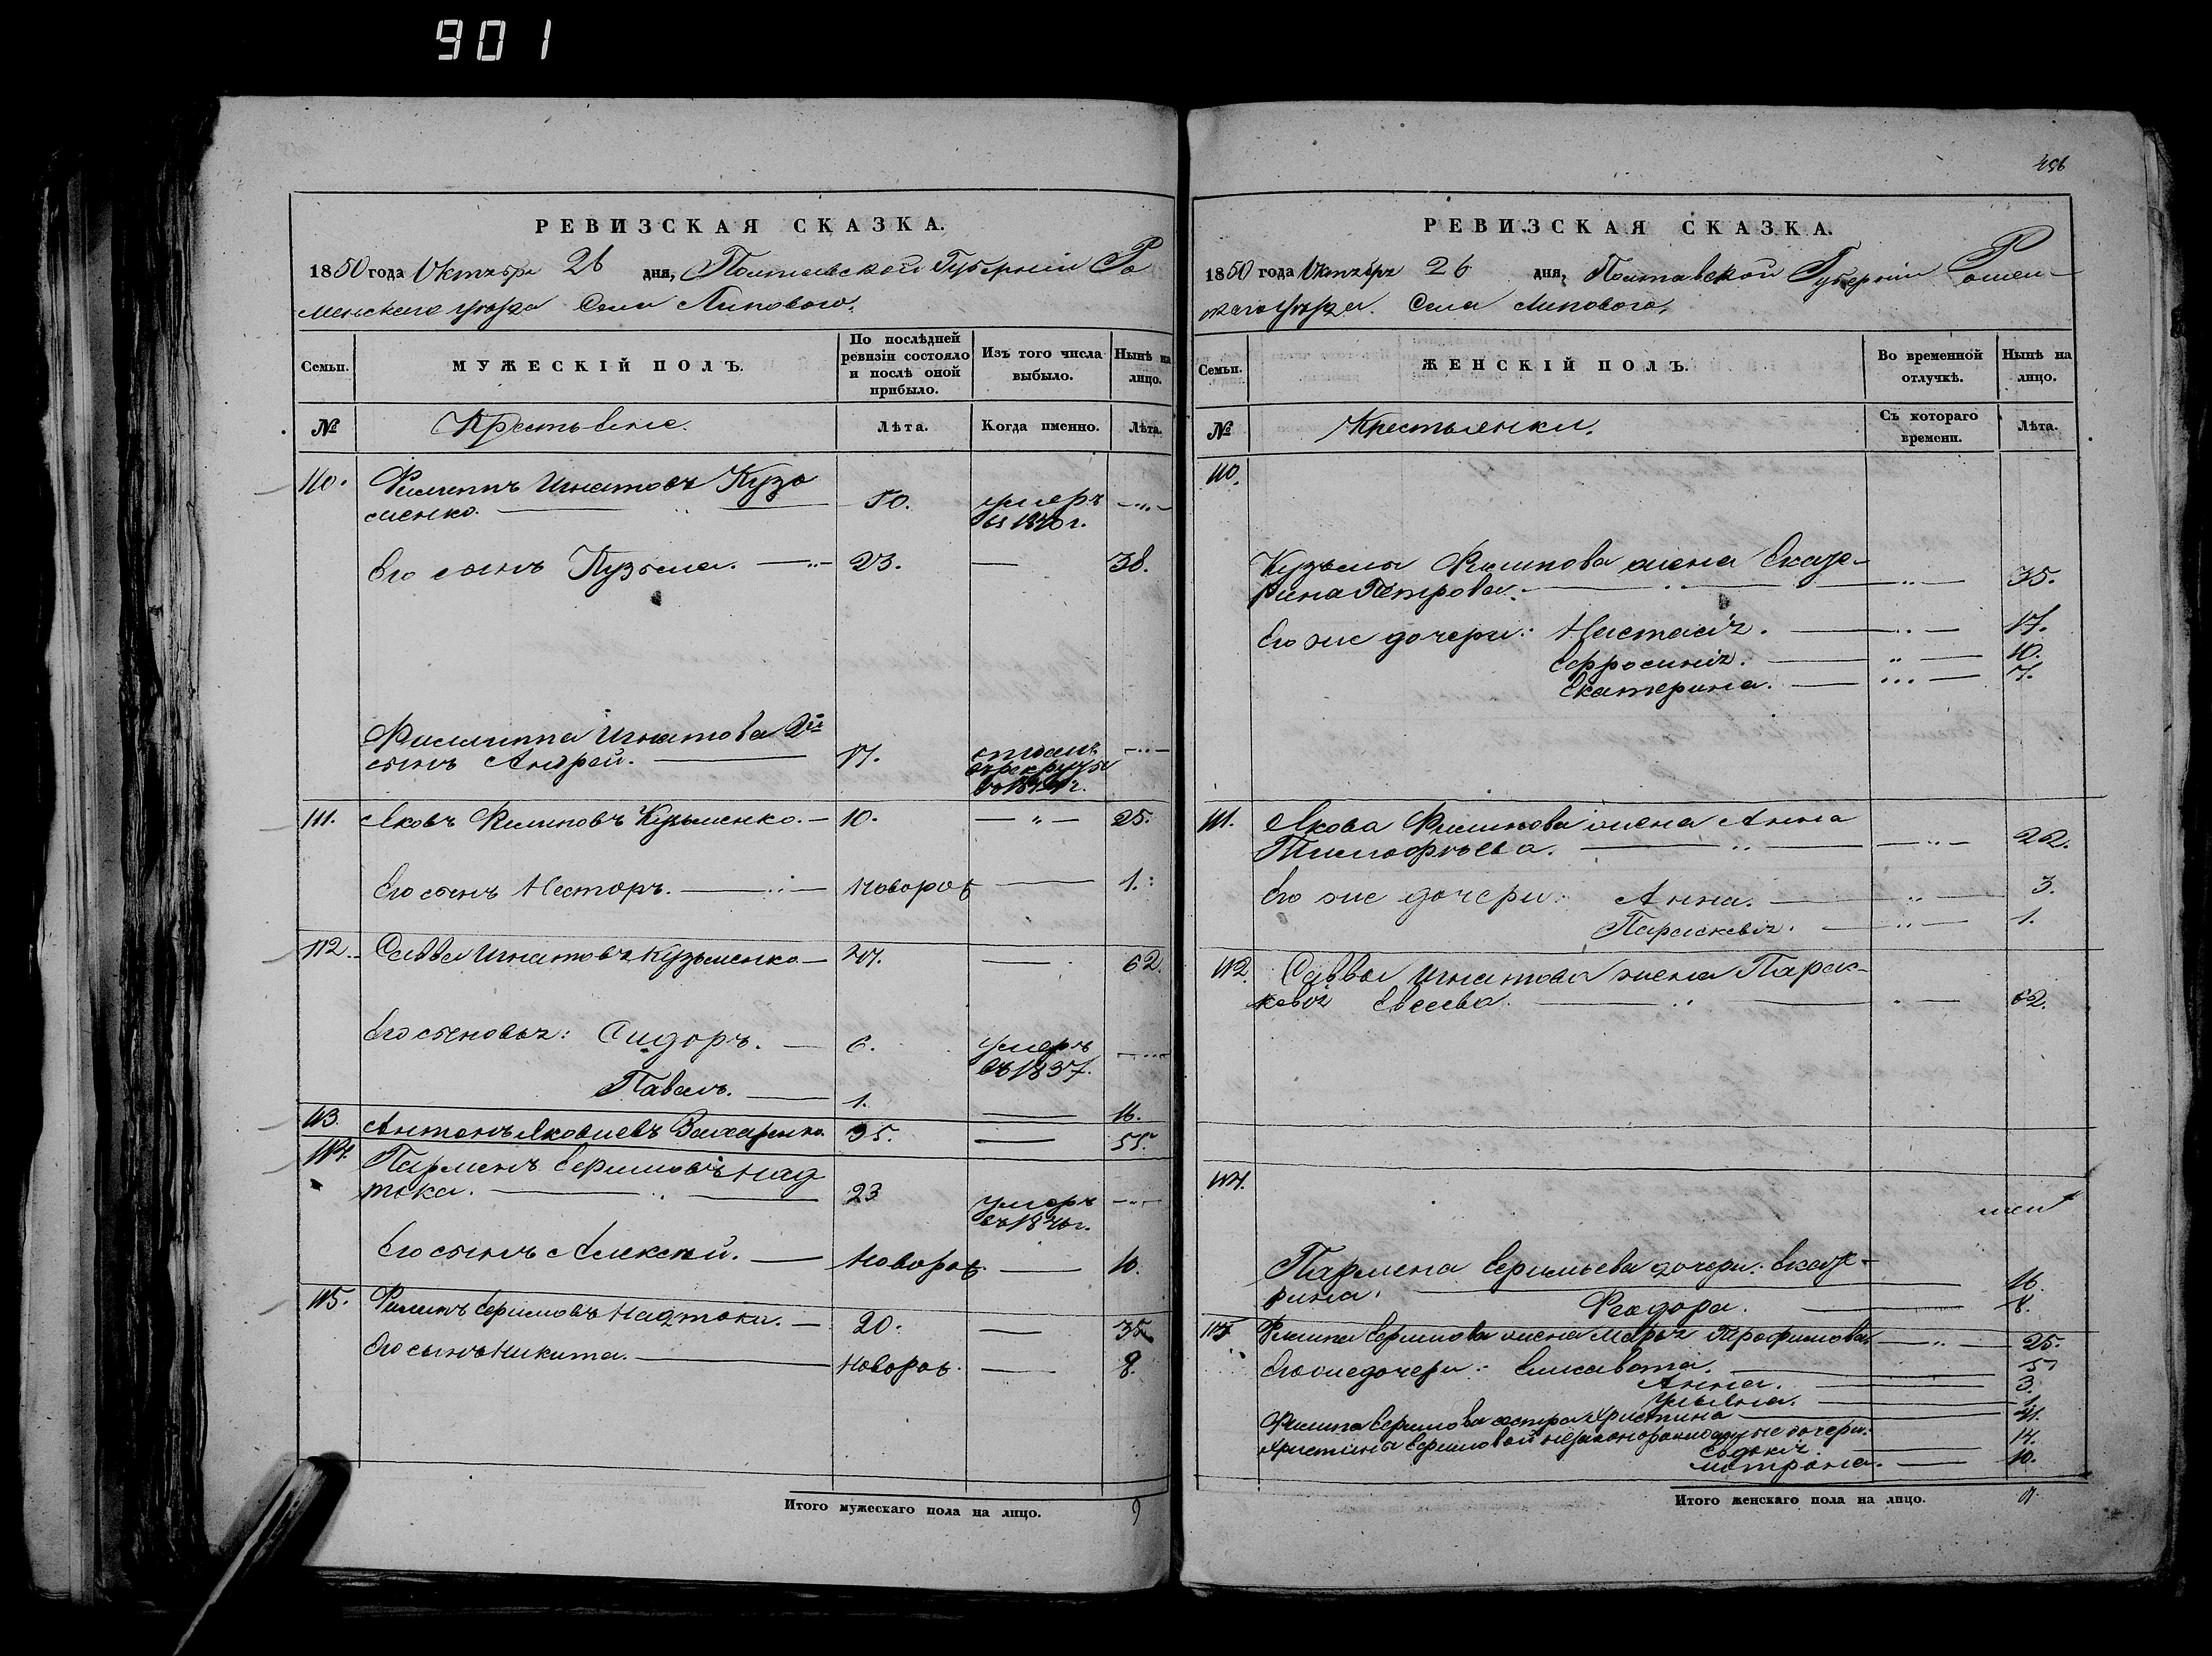 901
РЕВИЗСКАЯ СКАЗКА.
1850 года Октября 26 дня, Полтавской Губерніи Ро
менскаго уѣзда Села Липового.
Семьи.
МУЖЕСКІЙ ПОЛЪ.
По послѣдней ревизіи состояло и послѣ оной прибыло.
Изъ того числа выбыло.
Нынѣ на лицо.
№ Крестьяне. Лѣта. Когда именно. Лѣта.
110. Филиппъ Игнатовъ Кузь
менко. 50. умеръ въ 1840 г.
Его сынъ Кузьма. 23. — 38.
Филиппа Игнатова 2й
сынъ Андрей. 17.
111. Яковъ Филиповъ Кузьменко. 10. — 25.
Его сынъ Несторъ. новорож — 1.
112. Савва Игнатовъ Кузьменко 47. — 62.
Его сыновья: Сидоръ. 6. умеръ въ 1837.
Павелъ. 1. — 16.
113. Антонъ Яковлевъ Захаренко. 35. — 55.
114. Парменъ Ефимовъ Над
тока. 23 умеръ въ 1840 г.
Его сынъ Алексѣй. новорож. — 10.
115. Филипъ Ефимовъ Надтока. 20. — 35
Его сынъ Никита. новорож. — 8.
Итого мужескаго пола на лицо. 9
456
РЕВИЗСКАЯ СКАЗКА.
1850 года Октября 26 дня, Полтавской Губерніи Ромен-
скаго уѣзда. Села Липового.
Семьи.
ЖЕНСКІЙ ПОЛЪ.
Во временной отлучкѣ.
Нынѣ на лицо.
№ Крестьянки. Съ котораго времени. Лѣта.
110.
Кузьмы Филипова жена Екате-
рина Петрова. 35.
Его же дочери: Настасія. 17.
Ефросинія. 10.
Екатерина. 7.
111. Якова Филипова жена Анна
Тимофѣева. 22.
Его же дочери: Анна. 3.
Параскевія. 1.
112. Саввы Игнатова жена Парас-
кевія Евсеева. 62.
114.
Пармена Ефимьева дочери: Екате-
рина. 16
Феодора. 8.
115 Филипа Ефимова жена Марья Трофимова. 25.
Его же дочери: Елисавета. 5
Анна. 3.
Ульяна. 1.
Филипа Ефимова сестра Христина 41.
Христины Ефимовой незаконорожденые дочери:
Евдокія. 14.
Мотрона. 10.
Итого женскаго пола на лицо.